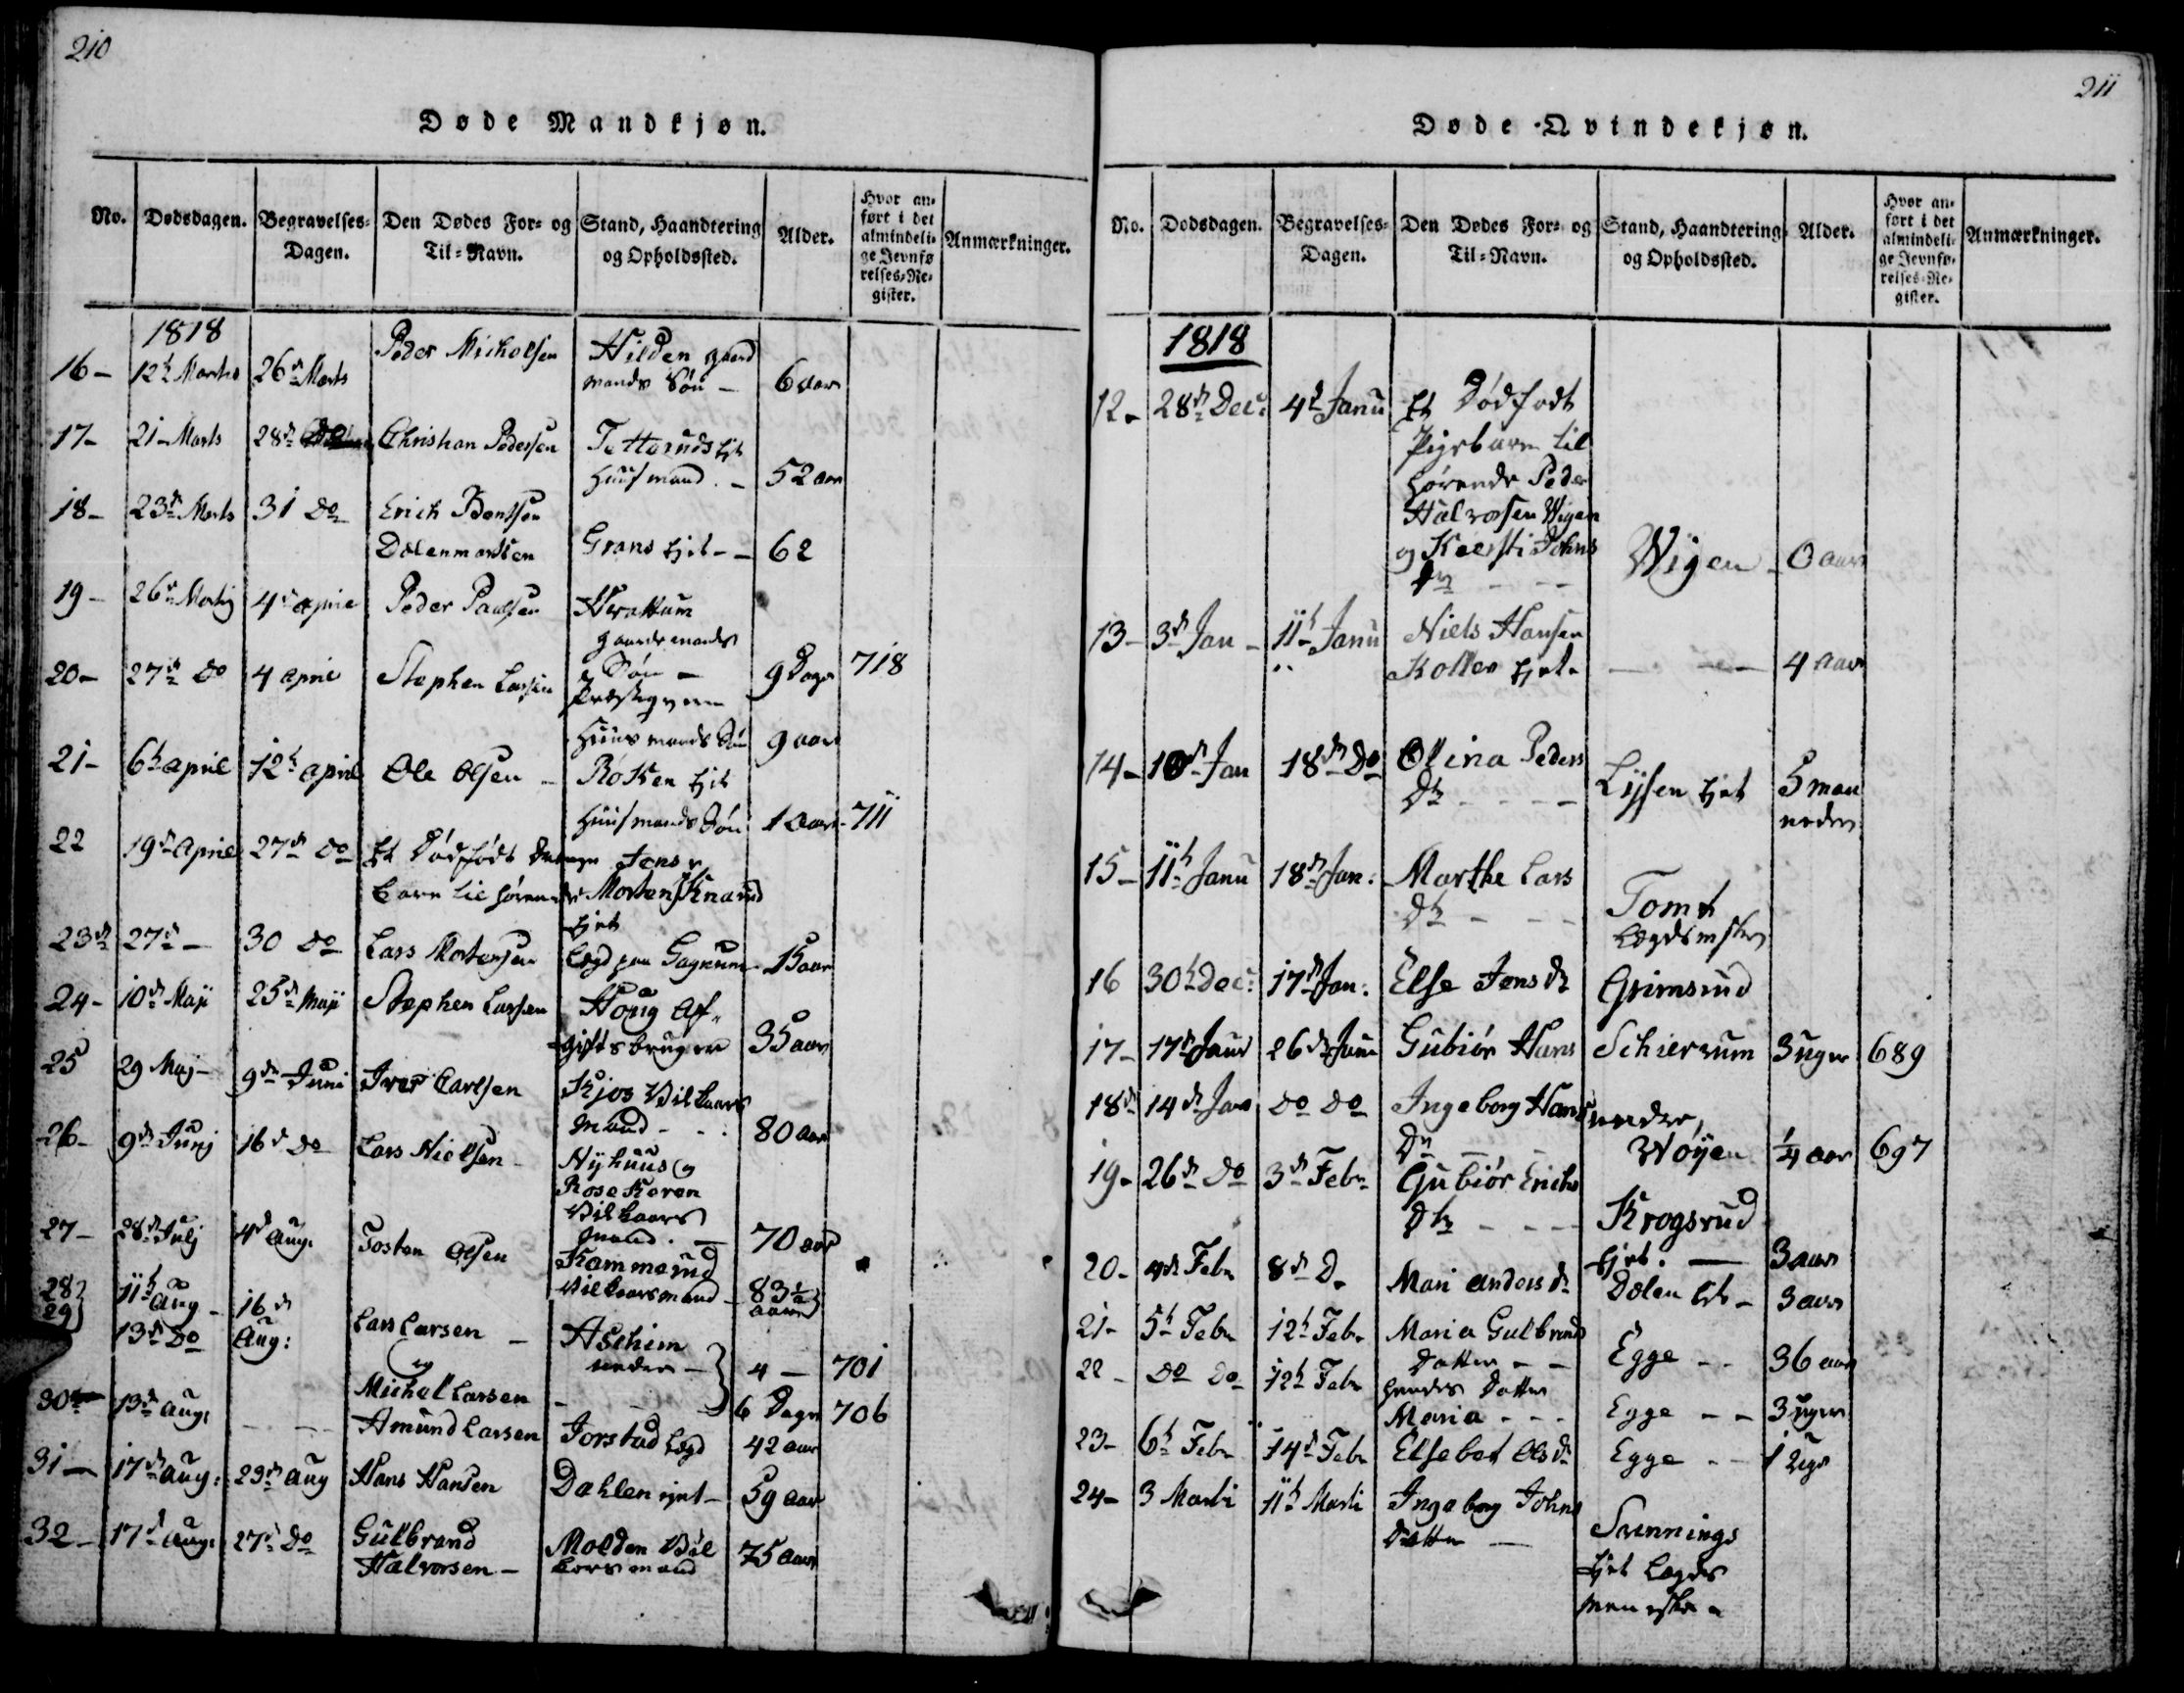 210
Døde Mandkjøn.
No. Dødsdagen. Begravelses-Dagen. Den Dødes For- og Til-Navn. Stand, Haandtering og Opholdssted. Alder. Hvor anført i det almindelige Jevnførelses-Register. Anmærkninger.
1818
16- 12t Martis 26d Marts Peder Micholsen Hilden gaard
mands Søn - 6 aar
17- 21- Marts 28d Christian Pedersen Tetteruds Ejt
Huusmand. - 52 aar
18- 23d Marts 31 do Erich Bentsen
Dælenmarken Grans Ejet - - 62
19- 26d 4d April Peder Paulsen
gaardemands
Søn - 9 Dage 718
20- 27d do 4 April Stephen Larsen
Huusmands Søn 9 aar
21- 6t April 12t April Ole Olsen - Røken Ejet
Huusmands Søn 1 aar - 711
22 19d April 27d do Et Dødfødt Drenge Jens
Barn tilhørende Morten Knarud
Ejet
23d 27d - 30 do Lars Mortensen Lægd paa Gagnum 15 aar
24- 10d Maji 25d Maji Stephen Larsen Houg Af-
giftsbruger 35 aar
25 29 Maj- 9d Juni Iver Carlsen Kjos Vilkaars
mand - - . 80 aar
26- 9d Junj 16d do Lars Nielsen - Nyhuus
Vilkaars
mand. - 70 aar
27- 28d Julj 4d Aug: Tosten Olsen Kammerud
Vilkaarsmand - 83½
aar
28 11t Aug - 16d Lars Larsen - Aschim
29 13d do Aug: og - 4 - 701
Michel Larsen - - - 6 Dage 706
30 13d Aug: - - - Amund Larsen Jorstad Lægd 42 aar
31- 17d Aug: 23d Aug Hans Hansen Dahlen ejet - 59 aar
32- 17d Aug: 27d do Gulbrand
Halvorsen - Molden Vil
kaarsmand 75 aar
211
Døde Qvindekjøn.
No. Dødsdagen. Begravelses-Dagen. Den Dødes For- og Til-Navn. Stand, Haandtering og Opholdssted. Alder. Hvor anført i det almindelige Jevnførelses-Register. Anmærkninger.
1818
12- 28d Dec: 4d Janu Et Dødfødt
Pigebarn til
hørende Peder
Halvorsen Wigen
og Kiersti Johns
Dr - - Wigen - 0 aar
13- 3d Jan - 11t Janu Niels Hansen
Koller Ejet - - - - 4 aar
14- 10d Jan 18d Do Olina Peders
Dtr - - - Lysen Ejet 5 maa
neder
15- 11t Janu 18d Jan: Marthe Lars
Dtr - - - Tomt
16 30t Dec: 17d Jan: Else Jens Dr Grimsrud
17- 17d Janu 26d Janu Gubiør Hans Schiervum 3 uger 689
18d 14d Jan do do Ingeborg Hans
Dr - - Woyen ¼ aar 697
19- 26d do 3d Febr Gubiør Erichs
Dtr - - - Krogsrud
Ejet. - 3 aar
20- 4d Febr 8d D. Mari Anders Dr Dælen Ejt - 3 aar
21- 5t Febr 12t Febr Maria Gulbrands
Datter - - Egge - - 36 aar
22- Do Do 12t Febr hendes Datter
Maria - - - Egge - - 3 uger
23- 6t Febr 14d Febr Elsebet Ols Dr Egge - - 1 Uge
24- 3 Marti 11t Marti Ingeborg Johns
Datter - Svennings
Ejet Lægds
menneske -